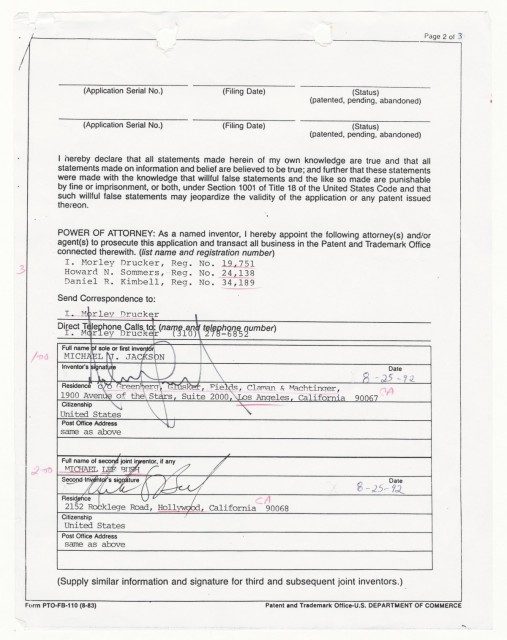 Page 2 of 3
(Application Serial No.) (Filing Date) (Status)
(patented, pending, abandoned)
(Application Serial No.) (Filing Date) (Status)
(patented, pending, abandoned)
I hereby declare that all statements made herein of my own knowledge are true and that all
statements made on information and belief are believed to be true; and further that these statements
were made with the knowledge that willful false statements and the like so made are punishable
by fine or imprisonment, or both, under Section 1001 of Title 18 of the United States Code and that
such willful false statements may jeopardize the validity of the application or any patent issued
thereon.
POWER OF ATTORNEY: As a named inventor, I hereby appoint the following attorney(s) and/or
agent(s) to prosecute this application and transact all business in the Patent and Trademark Office
connected therewith. (list name and registration number)
I. Morley Drucker, Reg. No. 19,751
3 Howard N. Sommers, Reg. No. 24,138
Daniel R. Kimbell, Reg. No. 34,189
Send Correspondence to:
I. Morley Drucker
Direct Telephone Calls to: (name and telephone number)
I. Morley Drucker (310) 278-6852
1-00 Full name of sole or first inventor
MICHAEL J. JACKSON
Inventor's signature Date
8-25-92
Residence c/o Greenberg, Glusker, Fields, Claman & Machtinger,
1900 Avenue of the Stars, Suite 2000, Los Angeles, California 90067 CA
Citizenship
United States
Post Office Address
same as above
2-00 Full name of second joint inventor, if any
MICHAEL LEE BUSH
Second Inventor's signature Date
8-25-92
Residence CA
2152 Rocklege Road, Hollywood, California 90068
Citizenship
United States
Post Office Address
same as above
(Supply similar information and signature for third and subsequent joint inventors.)
Form PTO-FB-110 (8-83) Patent and Trademark Office-U.S. DEPARTMENT OF COMMERCE